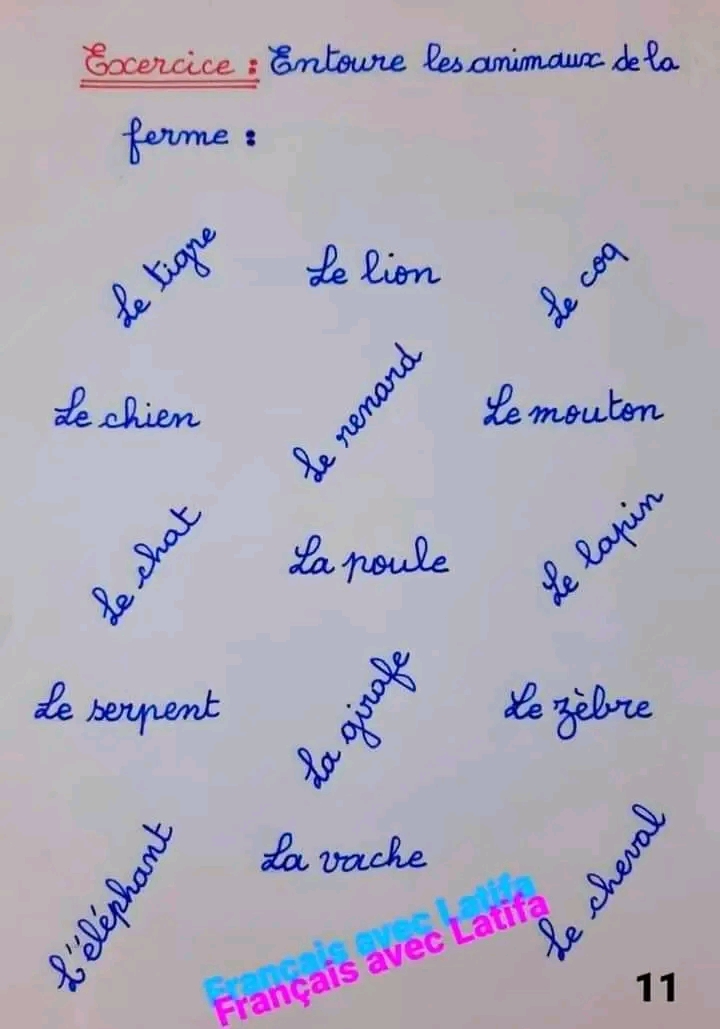 Excercice : Entoure les animaux de la
ferme :
Le tigre
Le lion
Le coq
Le chien
Le renard
Le mouton
Le chat
La poule
Le lapin
Le serpent
La girafe
Le zèbre
L'éléphant
La vache
Le cheval
Français avec Latifa
Français avec Latifa
11